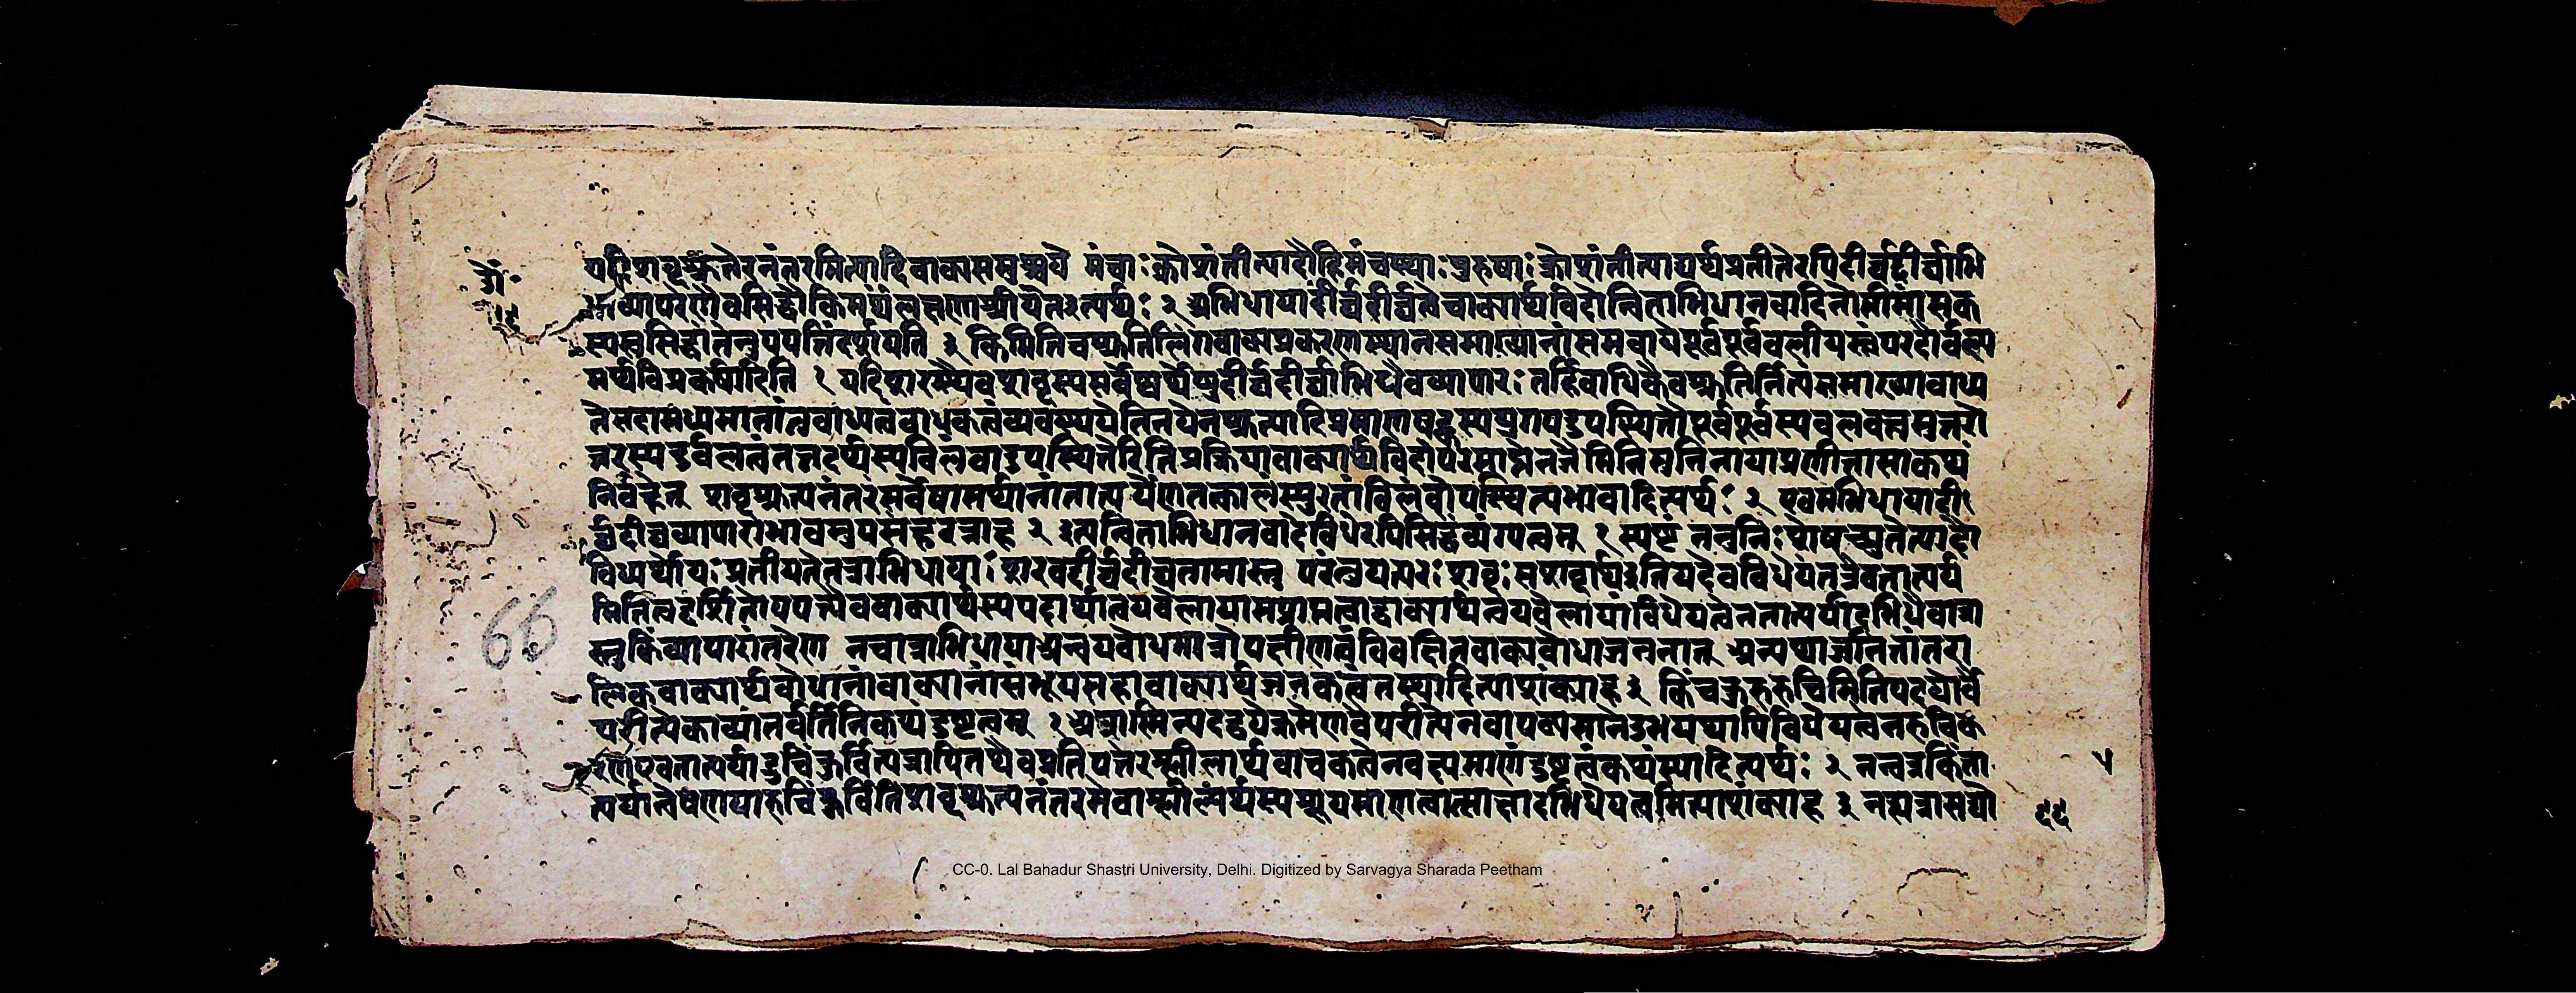 यदि शब्दश्रुतेरनंतरमित्यादिवाक्यसमुच्चये मंचाः क्रोशंतीत्यादौ हि मंचस्थाः पुरुषाः क्रोशंतीत्याद्यर्थप्रतीतेरपि दीर्घदीर्घाभि
धाव्यापारेणैव सिद्धौ किमर्थं लक्षणाश्रीयेतेत्यर्थः २ अभिधाया दीर्घदीर्घत्वे वाक्यार्थविदोन्विताभिधानवादिनो मीमांसक
स्य स्वसिद्धांतेनुपपत्तिं दर्शयति ३ किमिति च श्रुतिलिंगवाक्यप्रकरणस्थानसमाख्यानां समवाये पूर्वपूर्वबलीयस्त्वं परदौर्बल्य
मर्थविप्रकर्षादिति १ यदि शरस्यैव शब्दस्य सर्वेष्वर्थेषु दीर्घदीर्घाभिधैव व्यापारः तर्हि बाधिकैव श्रुतिर्नित्यं समाख्या बाध्य
ते सदा मध्यमानां तु बाध्यत्वबाधकत्वं व्यवस्थयेति नयेन श्रुत्यादिप्रमाणषट्कस्य युगपदुपस्थितौ पूर्वपूर्वस्य बलवत्त्वमुत्तरो
त्तरस्य दुर्बलत्वं तत्तदर्थस्य विलंबादुपस्थितेरिति प्रक्रिया वाक्यार्थविदां परमाप्तेन जैमिनिमुनिना या प्रणीता सा कथं
निर्वहेत् शब्दश्रुत्यनंतरं सर्वेषामर्थानां तात्पर्येण तत्कालस्फुरतां विलंबोपस्थित्यभावादित्यर्थः २ एवमभिधाया दी
र्घदीर्घव्यापाराभावमुपसंहरन्नाह २ इत्यन्विताभिधानवादे विधेरपि सिद्धं व्यंग्यत्वम् १ स्पष्टं नन्वनिःशेषच्युतेत्यादौ
विध्यर्थो यः प्रतीयते तत्राभिधायाः शरवद्दीर्घदीर्घता मास्तु परंतु यत्परः शब्दः स शब्दार्थ इति यदेव विधेयं तत्रैव तात्पर्य
मिति त्वद्दर्शितोपपत्त्यैव वाक्यार्थस्य पदार्थान्वयवेलायामप्राप्तत्वाद्वाक्यार्थान्वयवेलायां विधेयत्वेन तात्पर्यादभिधैवात्रा
स्तु किं व्यापारांतरेण न चात्राभिधाया अन्वयबोधमात्रोपक्षीणत्वं विवक्षितवाक्यबोधाजननात् अन्यथार्जनितांतरा
लिकवाक्यार्थबोधानां वाक्यानां संभूय महावाक्यार्थजनकत्वं न स्यादित्याशंक्याह ३ किंच कुरु रुचिमिति पदयोर्वै
परीत्ये काव्यांतर्वर्तिनि कथं दुष्टत्वम् १ अत्रास्मिन्पदद्वये क्रमेण वैपरीत्येन वा पठ्यमाने उभयथापि विधेयत्वेन रुचिक
रण एव तात्पर्याद्रुचिं कुर्वित्यत्रापि तथैव प्रतिपत्तेरश्लीलार्थवाचकत्वेन वक्ष्यमाणं दुष्टत्वं कथं स्यादित्यर्थः २ नन्वत्र किं ता
त्पर्यान्वेषणया रुचिं कुर्विति शब्दश्रुत्यनंतरमेवाश्लीलार्थस्य श्रूयमाणत्वात्साक्षादभिधेयत्वमित्याशंक्याह ३ न ह्यत्रासभ्यो
५५
66
CC-0. Lal Bahadur Shastri University, Delhi. Digitized by Sarvagya Sharada Peetham